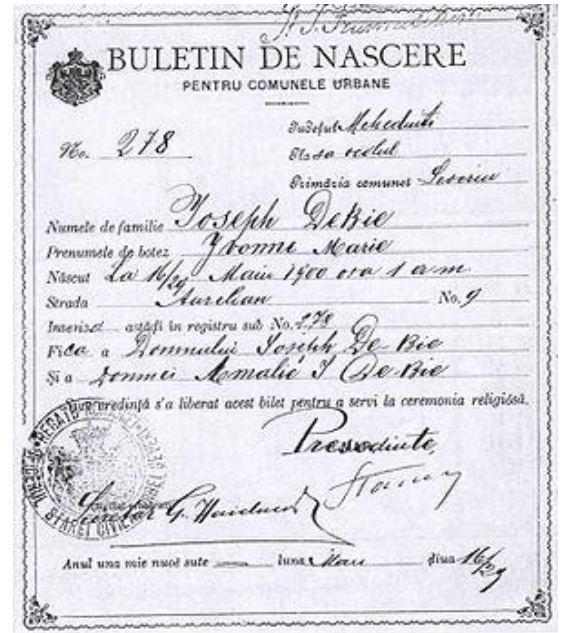 BULETIN DE NASCERE
PENTRU COMUNELE URBANE
Județul Mehedinți
No. 278
Plasa ocolul
Primăria comunei Severin
Numele de familie Joseph DeBie
Prenumele de botez Yvonne Marie
Născut La 16/29 Maiu 1900 ora 1 a m
Strada Aurelian No. 9
Inscris astăḑi in registru sub No. 278
Fica a Domnului Joseph De-Bie
Și a Domnei Amalie J De-Bie
credință s'a liberat acest bilet pentru a servi la ceremonia religiósă.
Presedinte
REGATUL
STAREI CIVILE
Secretar G.
Anul una mie nuoĕ sute luna Maiu ḑiua 16/29